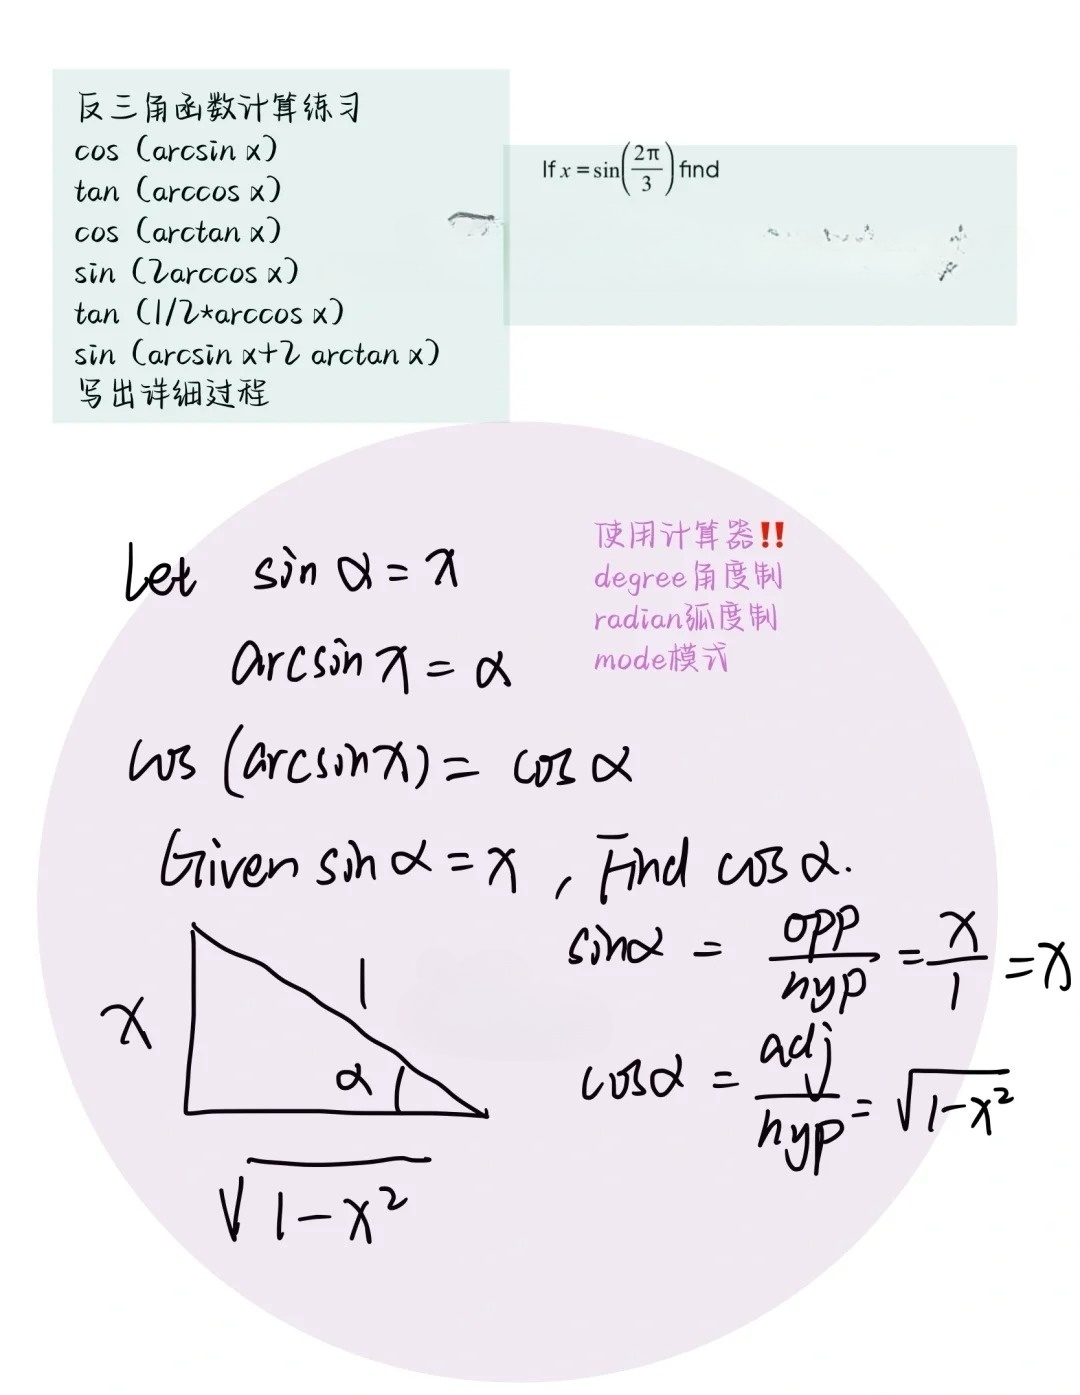 反三角函数计算练习
cos (arcsin x)
tan (arccos x)
cos (arctan x)
sin (2arccos x)
tan (1/2*arccos x)
sin (arcsin x+2 arctan x)
写出详细过程
If x = sin(2π/3) find
使用计算器‼️
degree角度制
radian弧度制
mode模式
Let sin α = x
arcsin x = α
cos (arcsin x) = cos α
Given sin α = x , Find cos α.
sin α = opp/hyp = x/1 = x
cos α = adj/hyp = √(1-x²)
x
1
α
√(1-x²)